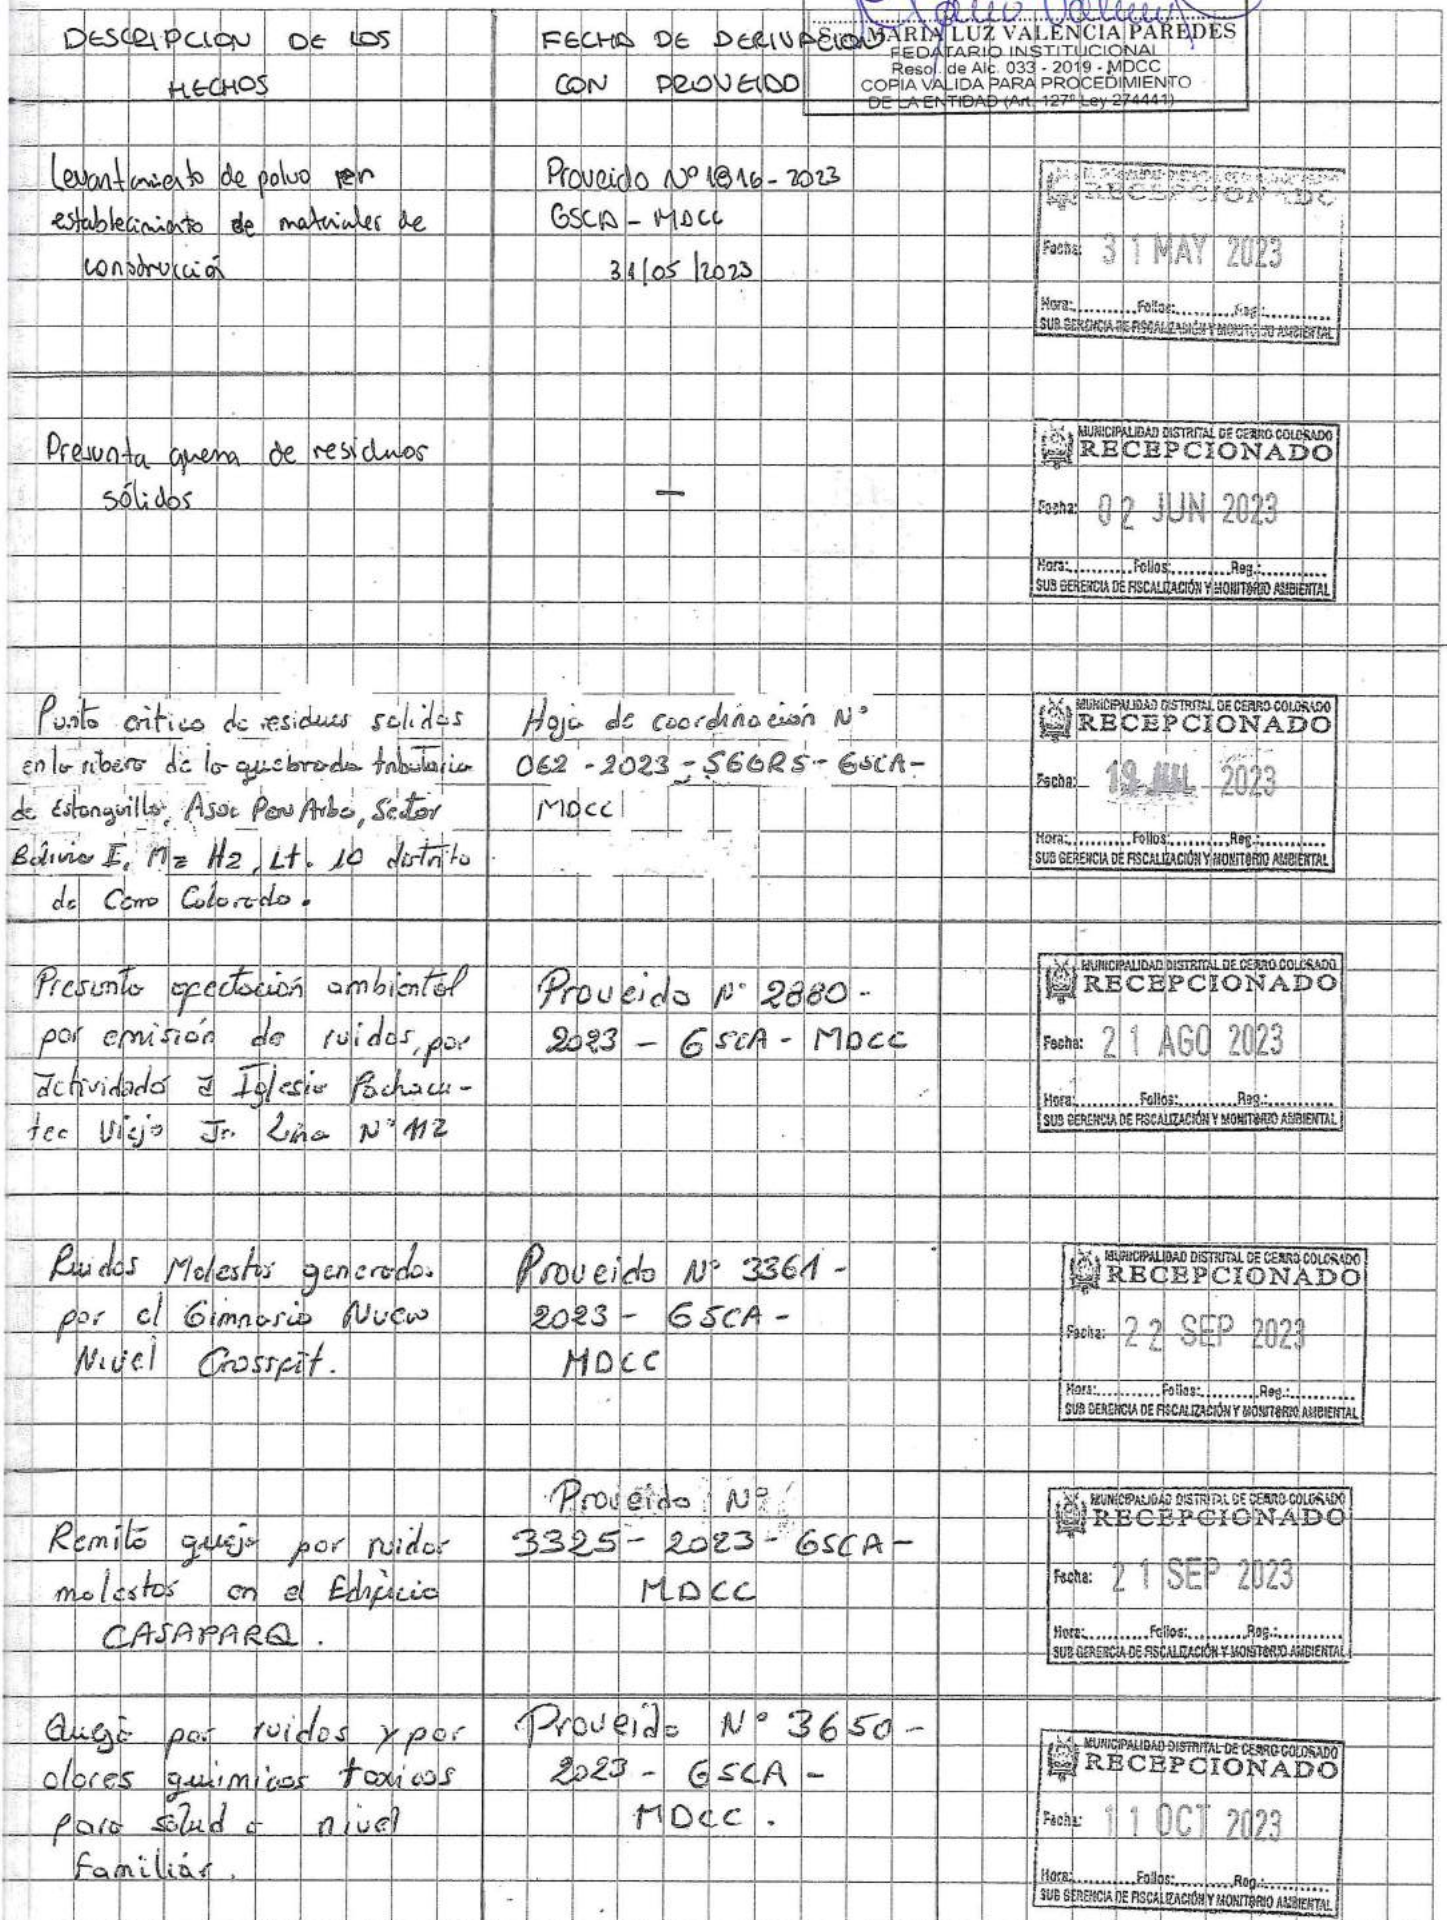 DESCRIPCION DE LOS
HECHOS
FECHA DE DERIVACION
CON PROVEIDO
MARIA LUZ VALENCIA PAREDES
FEDATARIO INSTITUCIONAL
Resol. de Alc. 033 - 2019 - MDCC
COPIA VALIDA PARA PROCEDIMIENTO
DE LA ENTIDAD (Art. 127º Ley 274441)
Levantamiento de polvo en
establecimiento de materiales de
construcción
Proveido Nº 1816-2023
GSCA - MDCC
31/05/2023
RECEPCIONADO
Fecha: 31 MAY 2023
Hora:..........Folios:..........Reg.:..........
SUB GERENCIA DE FISCALIZACIÓN Y MONITORIO AMBIENTAL
Presunta quema de residuos
sólidos
—
MUNICIPALIDAD DISTRITAL DE CERRO COLORADO
RECEPCIONADO
Fecha: 02 JUN 2023
Hora:..........Folios:..........Reg.:..........
SUB GERENCIA DE FISCALIZACIÓN Y MONITORIO AMBIENTAL
Punto critico de residuos solidos
en la ribera de la quebrada tributaria
de Estanquillo, Asoc Peru Arbo, Sector
Bolivia I, Mz H2, Lt. 10 distrito
de Cerro Colorado.
Hoja de coordinación Nº
062 - 2023 - SGGRS - GSCA -
MDCC
MUNICIPALIDAD DISTRITAL DE CERRO COLORADO
RECEPCIONADO
Fecha: 19 JUL 2023
Hora:..........Folios:..........Reg.:..........
SUB GERENCIA DE FISCALIZACIÓN Y MONITORIO AMBIENTAL
Presunta afectación ambiental
por emisión de ruidos, por
actividades a Iglesia Pachacu-
tec Viejo Jr. Lima Nº 112
Proveido Nº 2880 -
2023 - GSCA - MDCC
MUNICIPALIDAD DISTRITAL DE CERRO COLORADO
RECEPCIONADO
Fecha: 21 AGO 2023
Hora:..........Folios:..........Reg.:..........
SUB GERENCIA DE FISCALIZACIÓN Y MONITORIO AMBIENTAL
Ruidos Molestos generados
por el Gimnasio Nuevo
Nivel Crossfit.
Proveido Nº 3361 -
2023 - GSCA -
MDCC
MUNICIPALIDAD DISTRITAL DE CERRO COLORADO
RECEPCIONADO
Fecha: 22 SEP 2023
Hora:..........Folios:..........Reg.:..........
SUB GERENCIA DE FISCALIZACIÓN Y MONITORIO AMBIENTAL
Remito queja por ruidos
molestos en el Edificio
CASAPARQ.
Proveido Nº
3325 - 2023 - GSCA -
MDCC
MUNICIPALIDAD DISTRITAL DE CERRO COLORADO
RECEPCIONADO
Fecha: 21 SEP 2023
Hora:..........Folios:..........Reg.:..........
SUB GERENCIA DE FISCALIZACIÓN Y MONITORIO AMBIENTAL
Queja por ruidos y por
olores quimicos toxicos
para salud a nivel
familiar.
Proveido Nº 3650 -
2023 - GSCA -
MDCC.
MUNICIPALIDAD DISTRITAL DE CERRO COLORADO
RECEPCIONADO
Fecha: 11 OCT 2023
Hora:..........Folios:..........Reg.:..........
SUB GERENCIA DE FISCALIZACIÓN Y MONITORIO AMBIENTAL